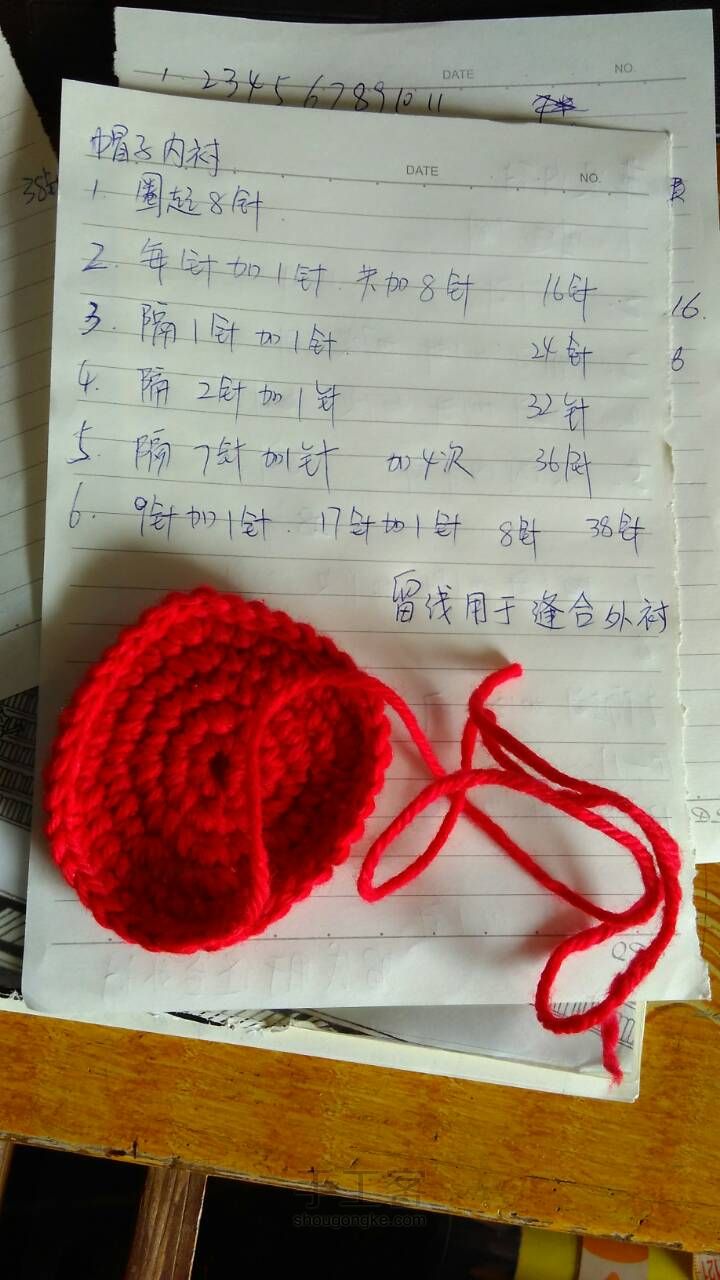 DATE NO.
1 2 3 4 5 6 7 8 9 10 11
帽子内衬
DATE NO.
1. 圈起8针
2. 每1针加1针 共加8针 16针
3. 隔1针加1针 24针
4. 隔2针加1针 32针
5. 隔7针加1针 加4次 36针
6. 9针加1针. 17针加1针 8针 38针
留线用于缝合外衬
38针
16.
8
手工客
shougongke.com